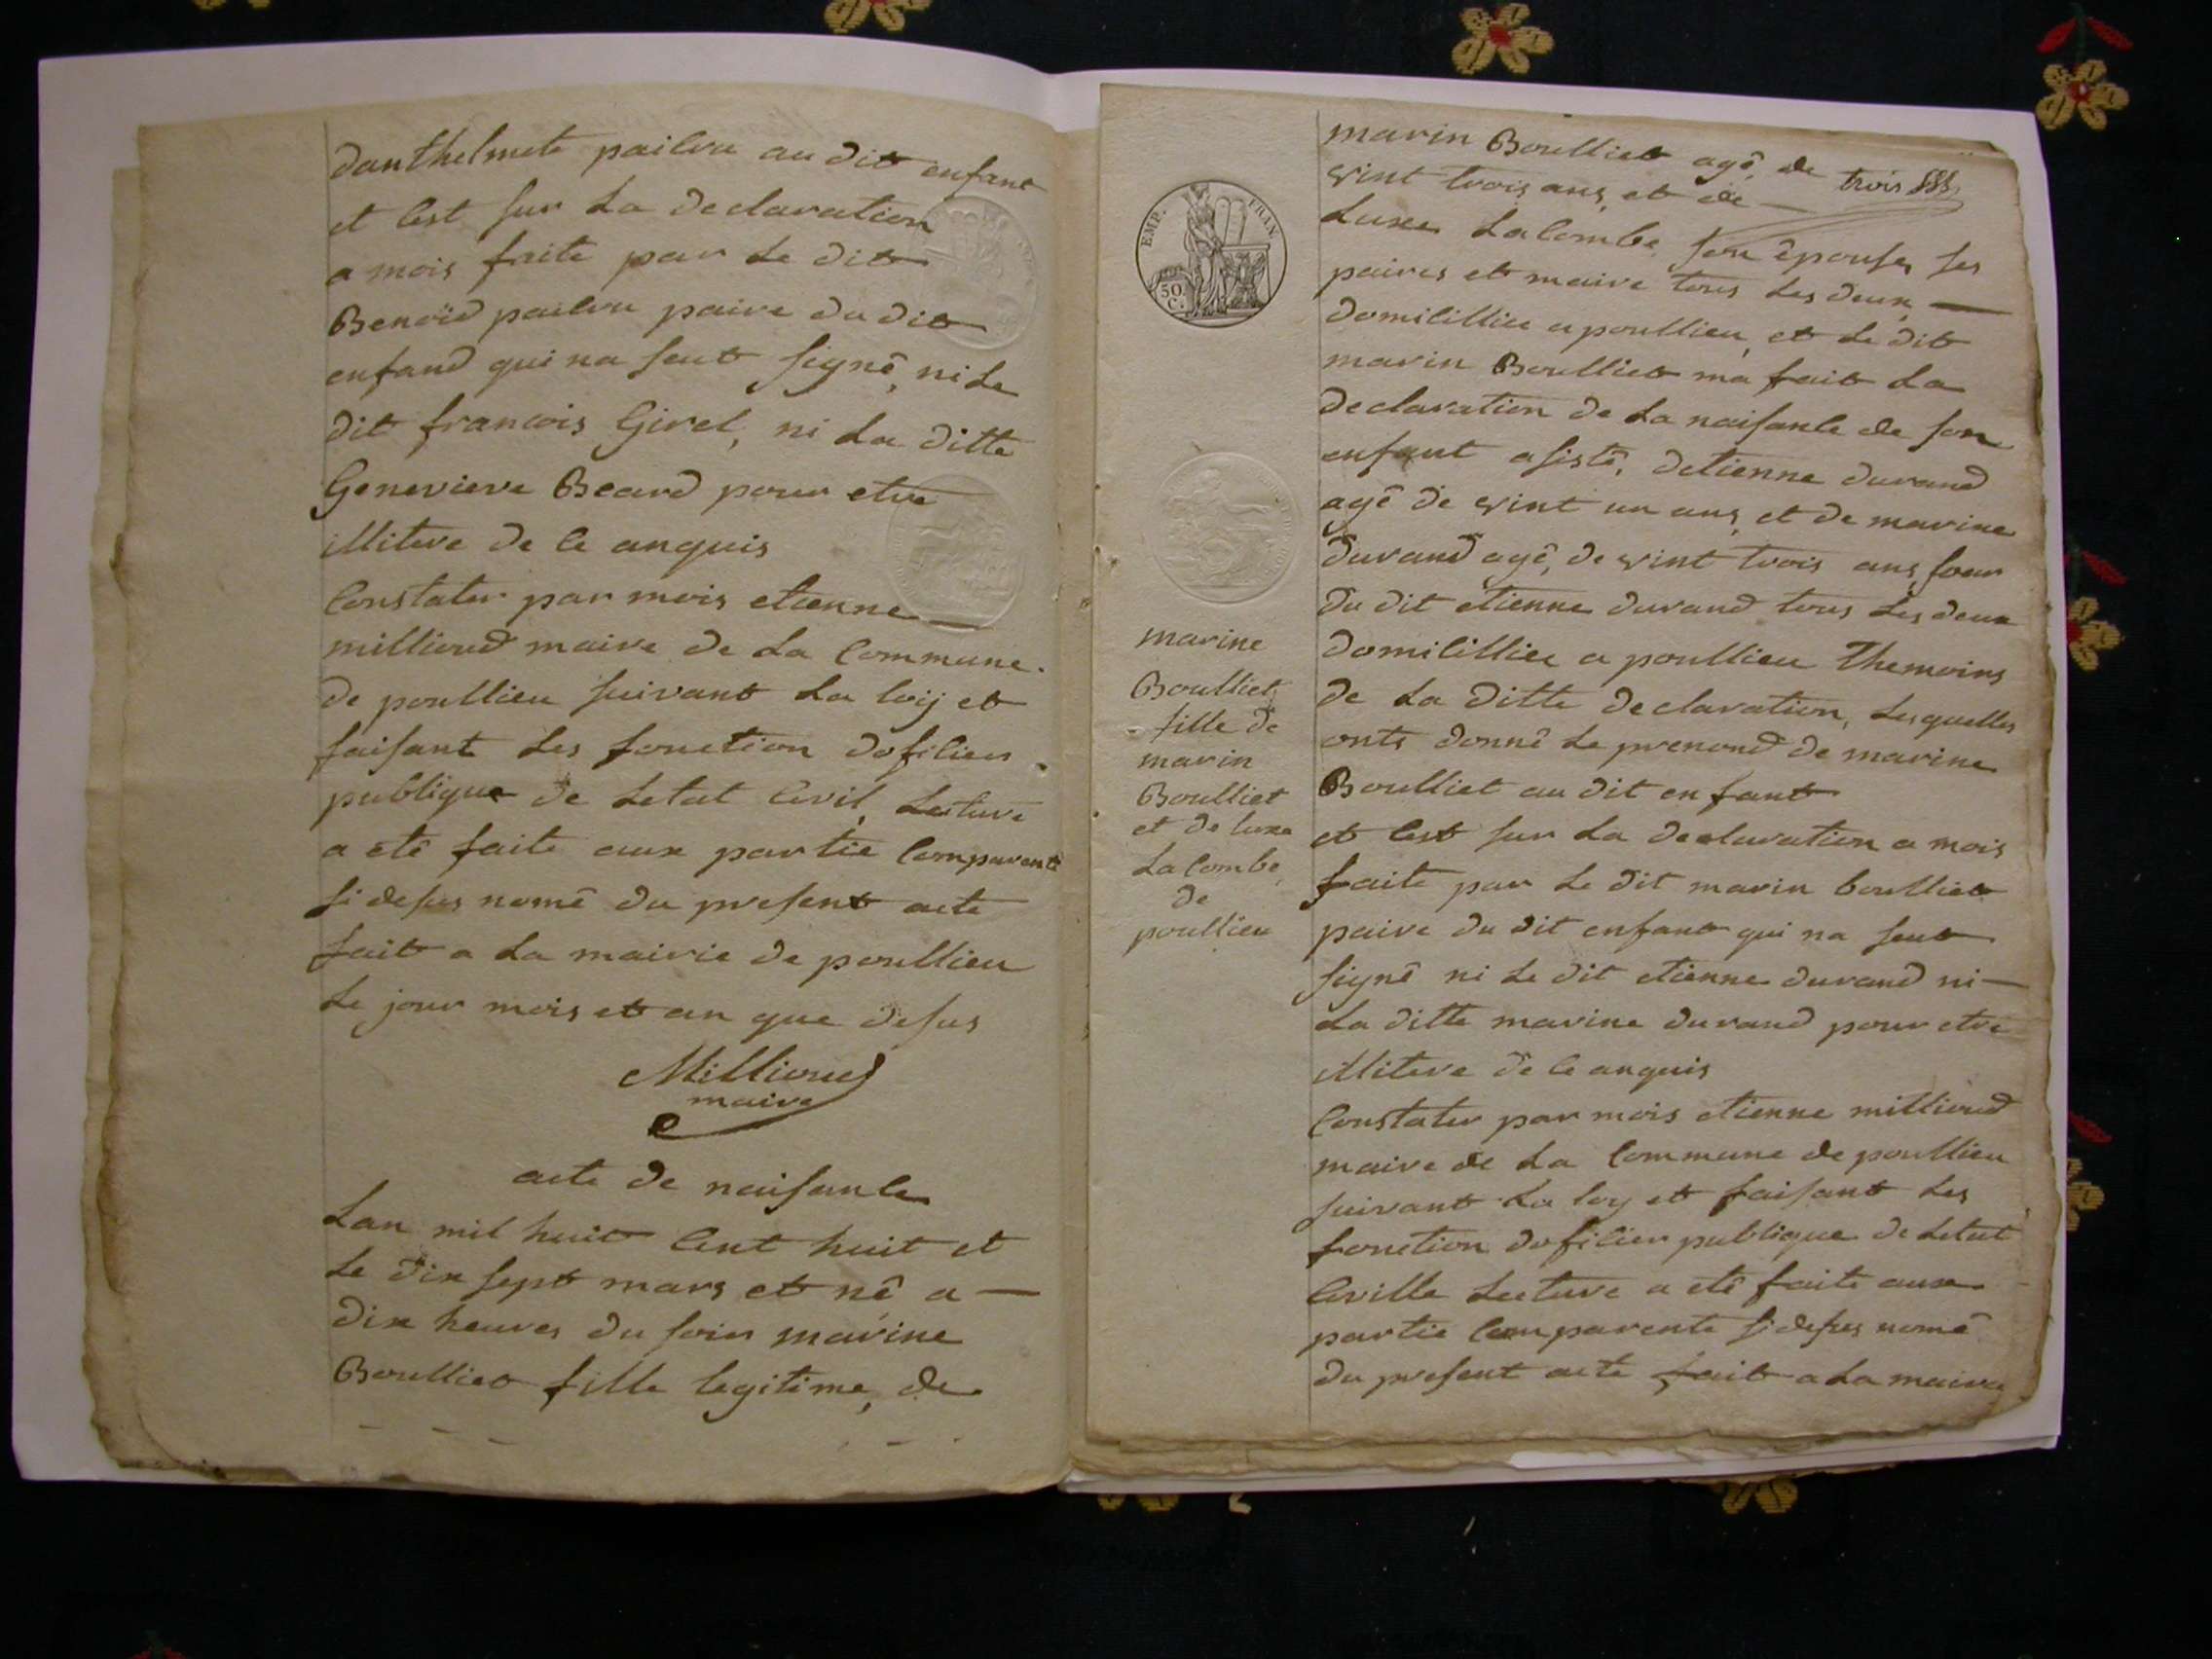 danthelmete pailvu au dit enfant
et cest sur la declaration
a mois faite par le dit
Benoid pailvu paire du dit
enfand qui na seut signê, ni le
dit francois Girel, ni la ditte
Genevieve Beard pour etre
illitere de ce anquis
Constater par mois etienne
milliond maire de la Commune
de poullieu suivant la loij et
faisant les fonction doficier
publique de letat Civil, lecture
a etê faite aux partie Comparente
si desus nomê du present acte
fait a la mairie de poullieu
le jour mois et an que desus
Milliond
maire
acte de naisance
Lan mil huit cent huit et
le dix sept mars et nê a
dix heures du soir marine
Boulliet fille legitime, de
EMP. FRAN.
50
C.
marine
Boulliet
fille de
marin
Boulliet
et de luxe
la Combe
de
poullieu
trois
marin Boulliet agê, de
vint trois ans, et de
Luxe Lacombe son êpouse, ses
paires et maire tous les deux
domicillier a poullieu, et le dit
marin Boulliet ma fait la
declaration de la naisance de son
enfant asistê, detienne durand
agê de vint un ans, et de marine
durand agê, de vint trois ans soeur
du dit etienne durand tous les deux
domicillier a poullieu themoins
de la ditte declaration, lesquelles
onts donnê le prenond de marine
Boulliet au dit enfant
et cest sur la declaration a mois
faite par le dit marin boulliet
paire du dit enfant qui na seut
signê ni le dit etienne durand ni
la ditte marine durand pour etre
illitere de ce anquis
Constater par mois etienne milliond
maire de la Commune de poullieu
suivant la loy et faisant les
fonction doficier publique de letat
Civille lecture a etê faite aux
partie Comparente si desus nomê
du present acte fait a la maire